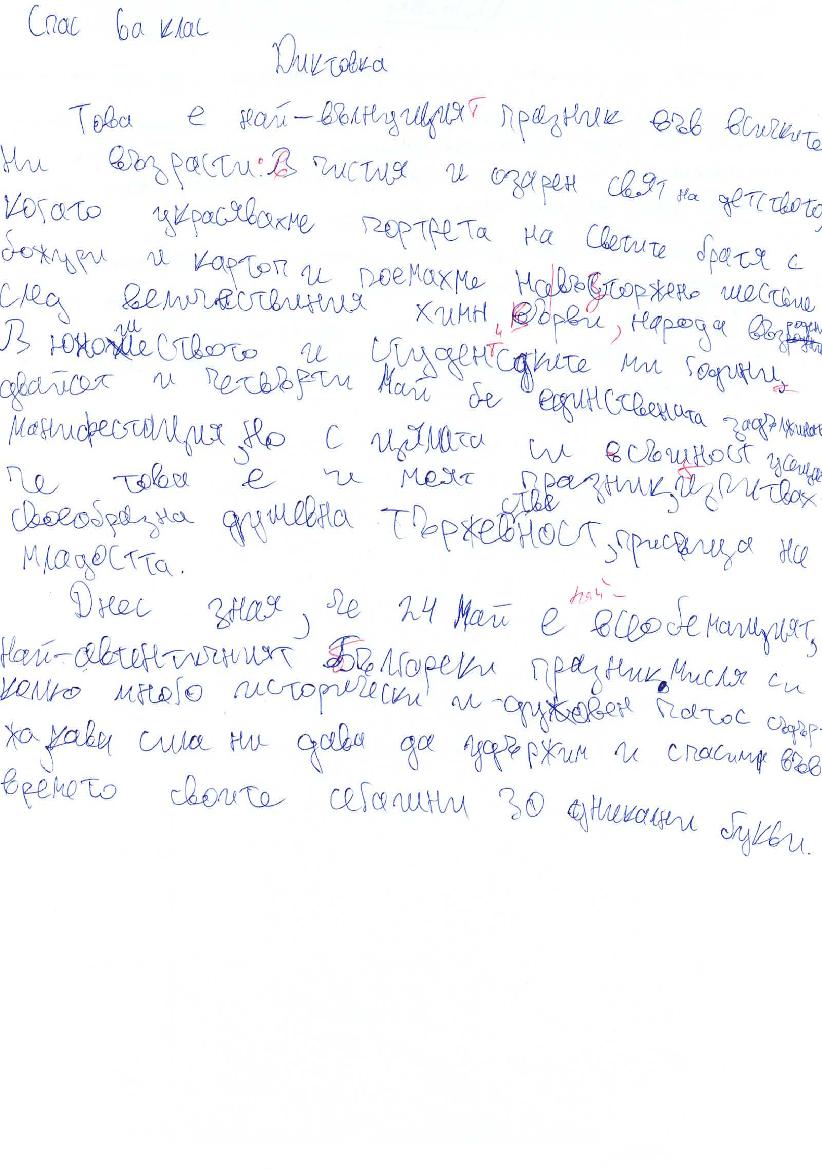 Спас 6а клас
Диктовка
Това е най-вълнуцияＴ празник във всичките
ни възрасти: В чистия и озарен свят на детството,
когато украсявахме портрета на светите братя с
божури и картоп и поемахме на въсторжено шествие
след величествения химн „Върви, народе възродени
В юношеството и студентските ми години,
двайсет и четвърти Май бе единствената задължителна
манифестация, но с цялата си всъшност усещах
че това е и моят празник, изпитвах
своеобразна душевна тържественост, присъща на
младостта.
Днес зная, че 24 Май е най- всеобемащият,
най-автентичният Български празник. Мисля си
колко много исторически и духовен патос съдър-
жа каква сила ни дава да удържим и спасим във
времето своите сегашни 30 уникални букви.